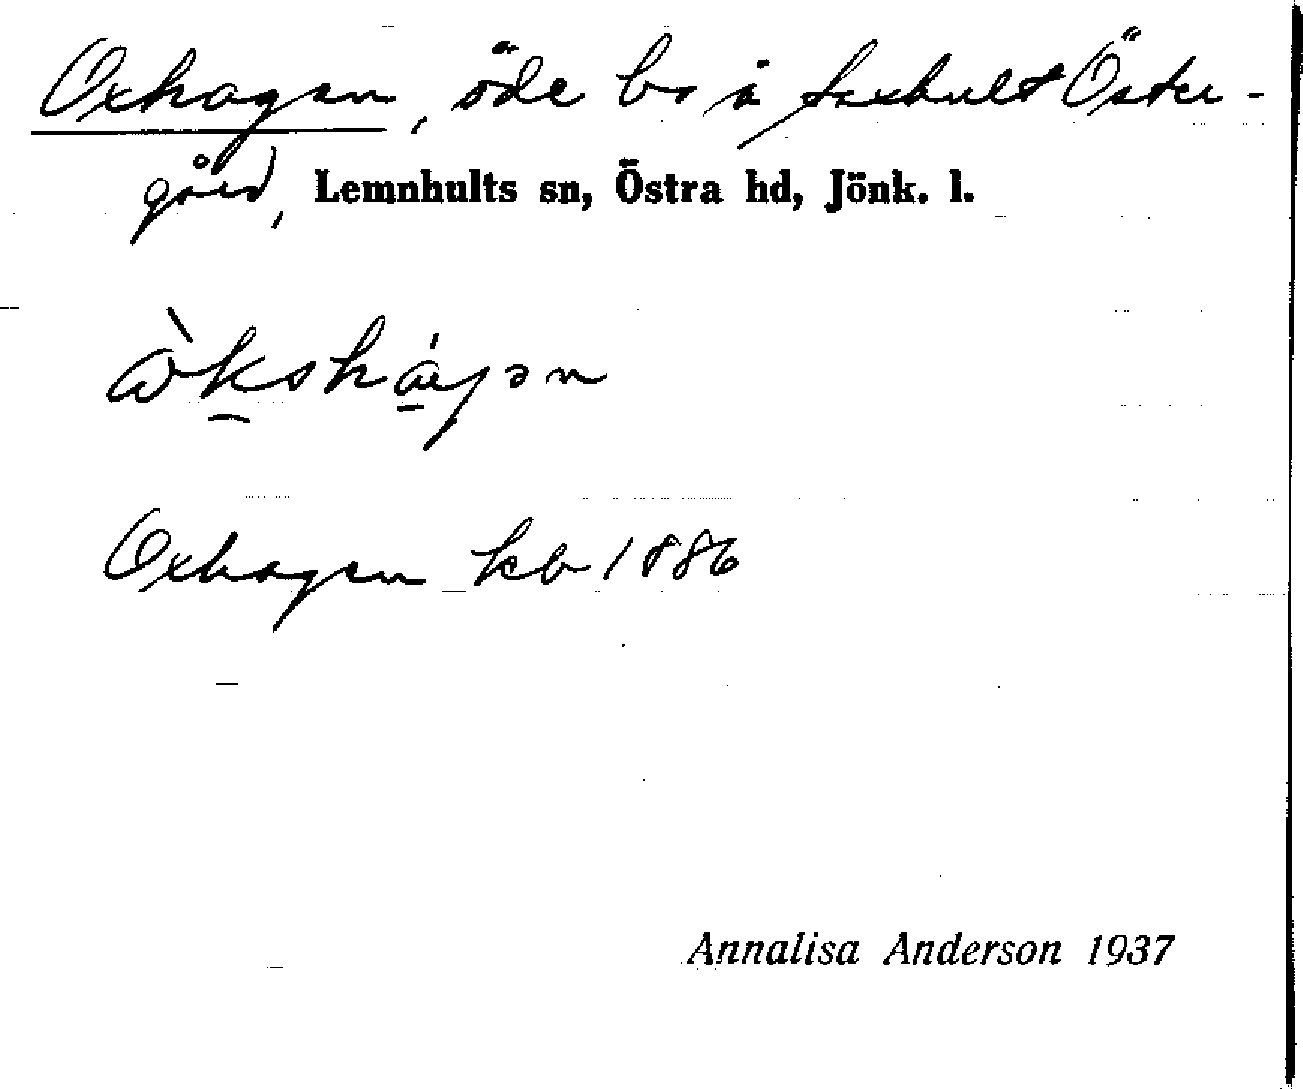 Oxhagen, öde bs å Saxhult Öster-
gård, Lemnhults sn, Östra hd, Jönk. l.
Oxhagen kb 1886
Annalisa Anderson 1937